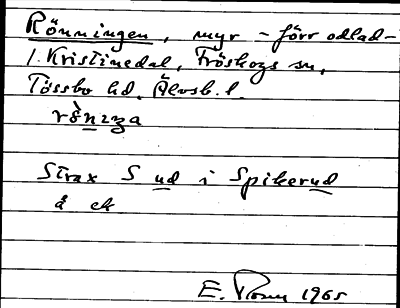 Rönningen, myr – förr odlad –
1. Kristinedal, Fröskogs sn,
Tössbo hd. Älvsb. l.
rö̀nıŋa
Strax S ud i Spikerud
å ek
E. Rosen 1965